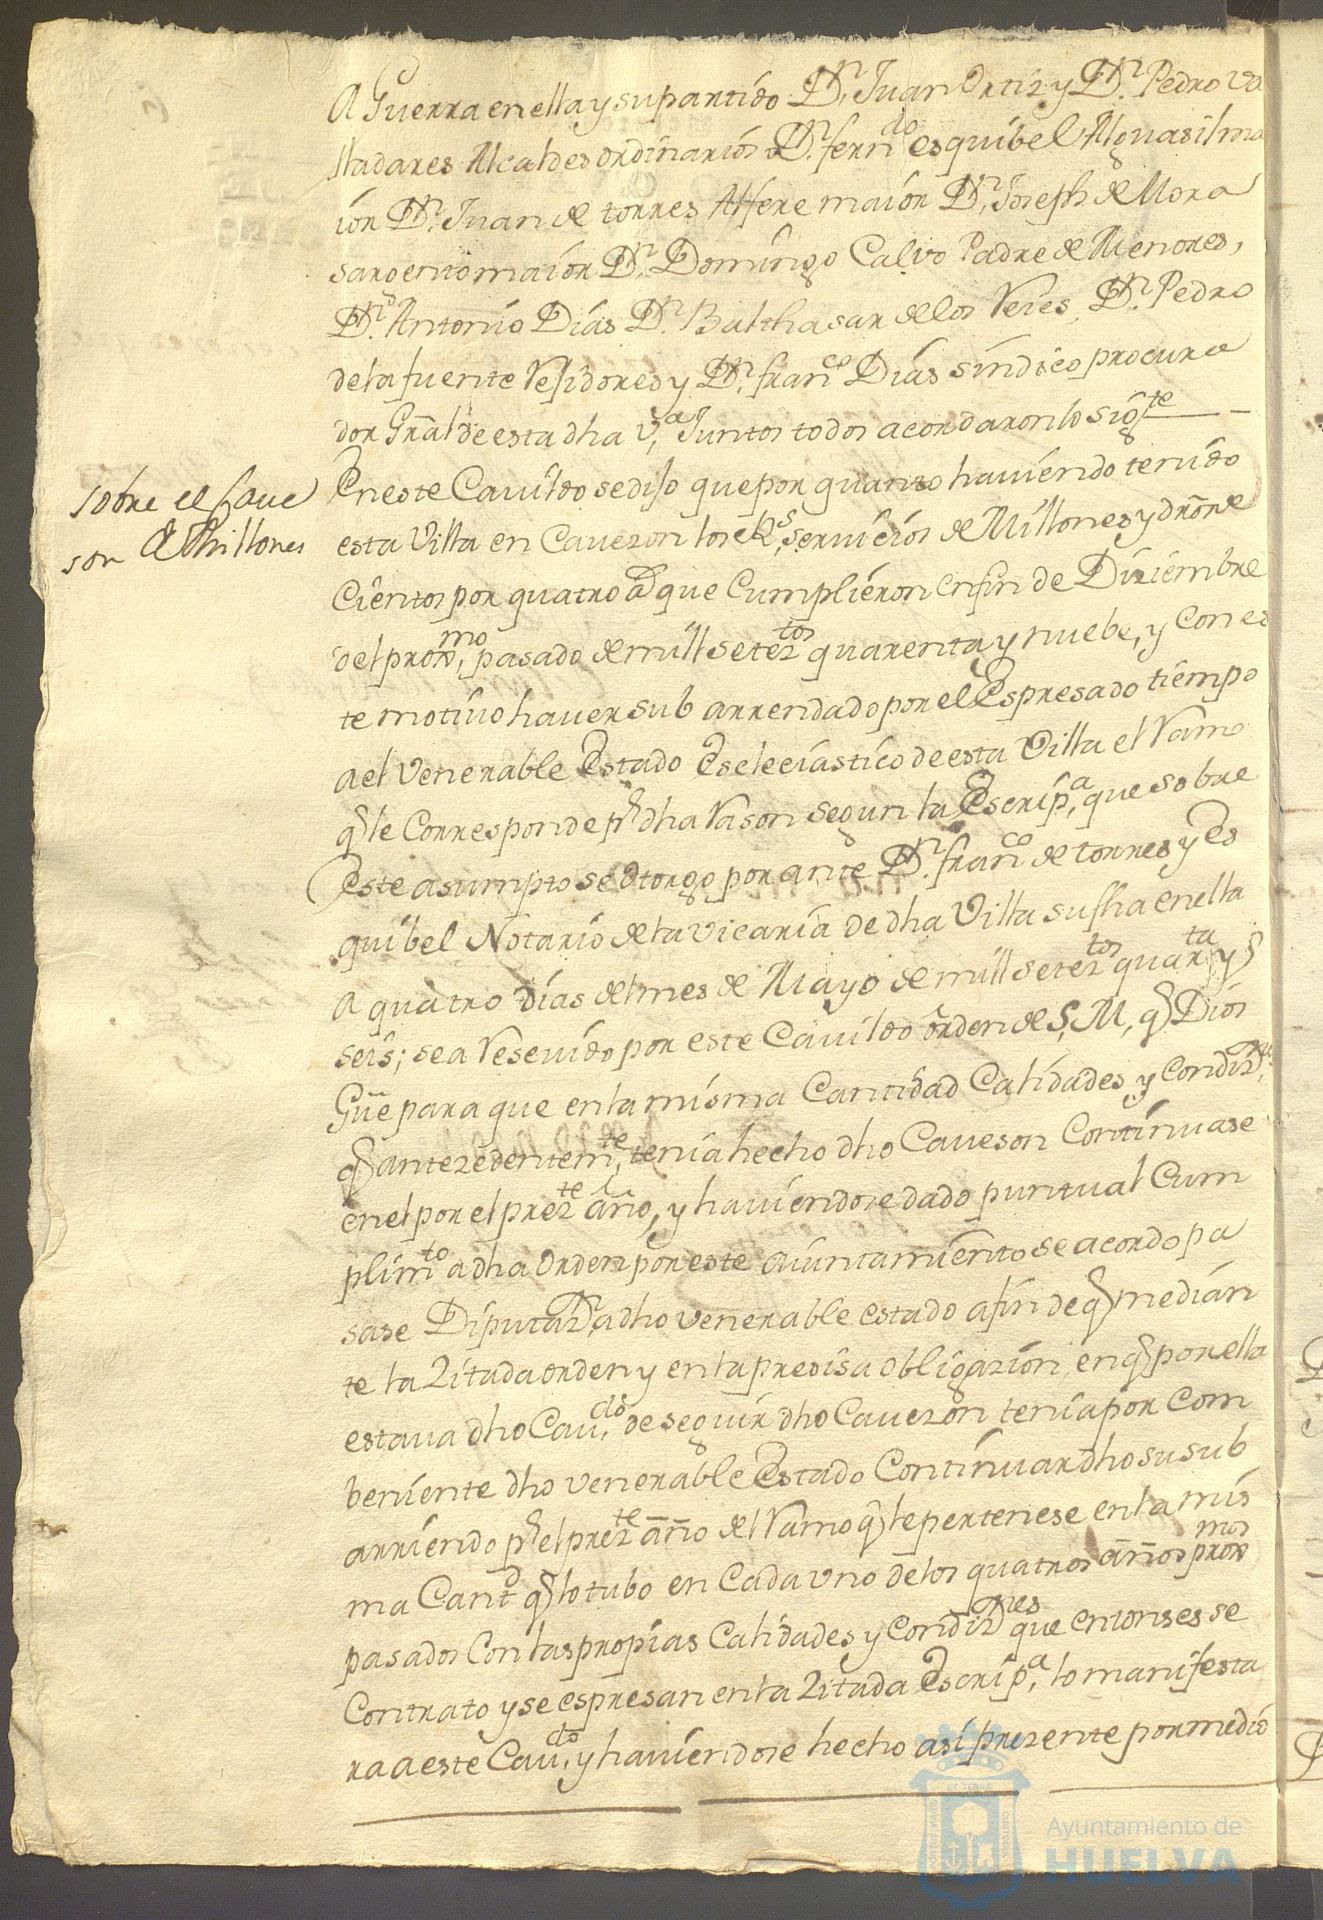 A Guerra en ella y su partido Dn. Juan Ortiz y Dn. Pedro Va
lladares Alcaldes ordinarios Dn. ferndo esquibel Alguasil ma
ior Dn. Juan de torres Alfere maior Dn. Joseph de Mora
sargento maior Dn. Domingo Calvo Padre de Menores,
Dn. Antonio Dias Dn. Balthasar de los Reies, Dn. Pedro
de la fuente Residores y Dn. franco Dias sindico procura
dor Gral de esta dha va, Juntos todos acordaron lo sigte
sobre el Cave
son de Millones
En este Cavildo se dijo que por quanto haviendo tenido
esta Villa en Cavezon los Rs. servicios de Millones y dro de
Cientos por quatro as que Cumplieron en fin de Diziembre
del proxmo, pasado de mill seteztos quarenta y nuebe, y con es
te motivo haver sub arrendado por el Espresado tiempo
a el Venerable Estado Eseleciastico de esta Villa el Ramo
q le Corresponde pr dha Rason segun la Escripa, que sobre
Este asumpto se otorgo por ante Dn. franco de torres y Es
quibel Notario de la vicaria de dha Villa su fha en ella
A quatro dias del mes de Mayo de mill seteztos quarta y
seis; se a Resevido por este Cavildo orden de S, M, q Dios
Gue para que en la misma Cantidad Calidades y Condizs.
q antezedentemte, tenia hecho dho Caveson Continuase
en el por el prezte año, y haviendose dado puntual Cum
plimto a dha Orden por este aiuntamiento se acordo pa
sase Diputazn, a dho venerable estado a fin de q median
te la Zitada orden y en la presisa obligazion, en q por ella
estava dho Cavdo. de seguir dho Cavezon tenia por Com
beniente dho venerable Estado Continuar dho su sub
arriendo pr el prezte año del Ramo q le pertenese en la mis
ma Cantd q lo tubo en Cada uno de los quatros años proxmos
pasados Con las propias Calidades y Condiznes que entonses se
Contrato y se espresan en la Zitada Escripa, lo manifesta
ra a este Cavdo, y haviendose hecho asi prezente por medio
Ayuntamiento de
HUELVA